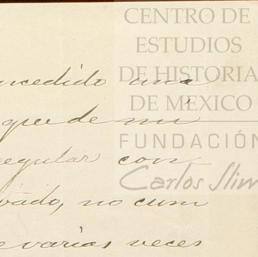 CENTRO DE
ESTUDIOS
DE HISTORIA
DE MÉXICO
FUNDACIÓN
Carlos Slim
ncedido una
que de mi
regular con
vado, no cum
e varias veces